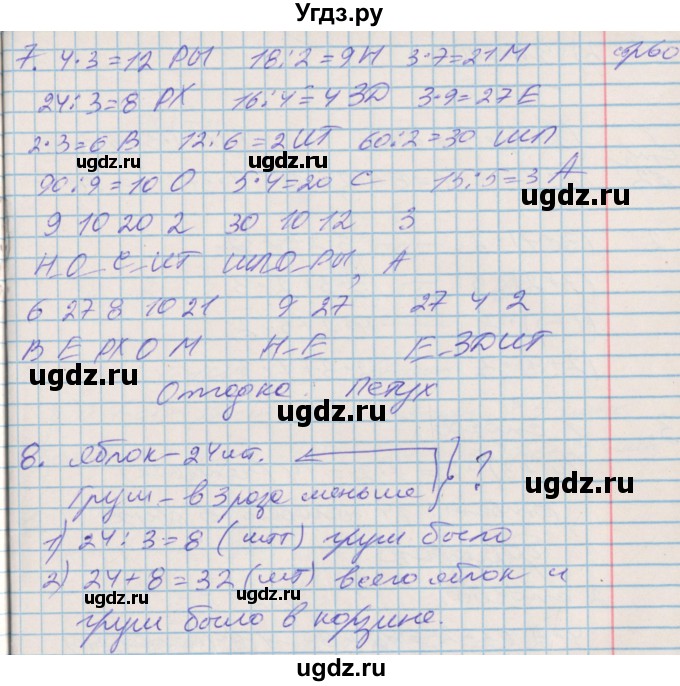 Угдз.ру
7. 4·3=12 РЫ 18:2=9 Н 3·7=21 М стр60
24:3=8 РХ 16:4=4 ЗД 3·9=27 Е
2·3=6 В 12:6=2 ИТ 60:2=30 ШП
ugdz.ru ugdz.ru ugdz.ru
90:9=10 О 5·4=20 С 15:5=3 А
9 10 20 2 30 10 12 3
Н-О-С-ИТ ШПО-РЫ, А
6 27 8 10 21 9 27 27 4 2
В Е РХ О М Н-Е Е-ЗДИТ
ugdz.ru ugdz.ru
Отгадка Петух
ugdz.ru
8. Яблок – 24 шт.
ugdz.ru ugdz.ru
Груш – в 3 раза меньше } ?
1) 24:3=8 (шт) груш было
2) 24+8=32 (шт) всего яблок и
ugdz.ru ugdz.ru ugdz.ru
груш было в корзине.
ugdz.ru ugdz.ru